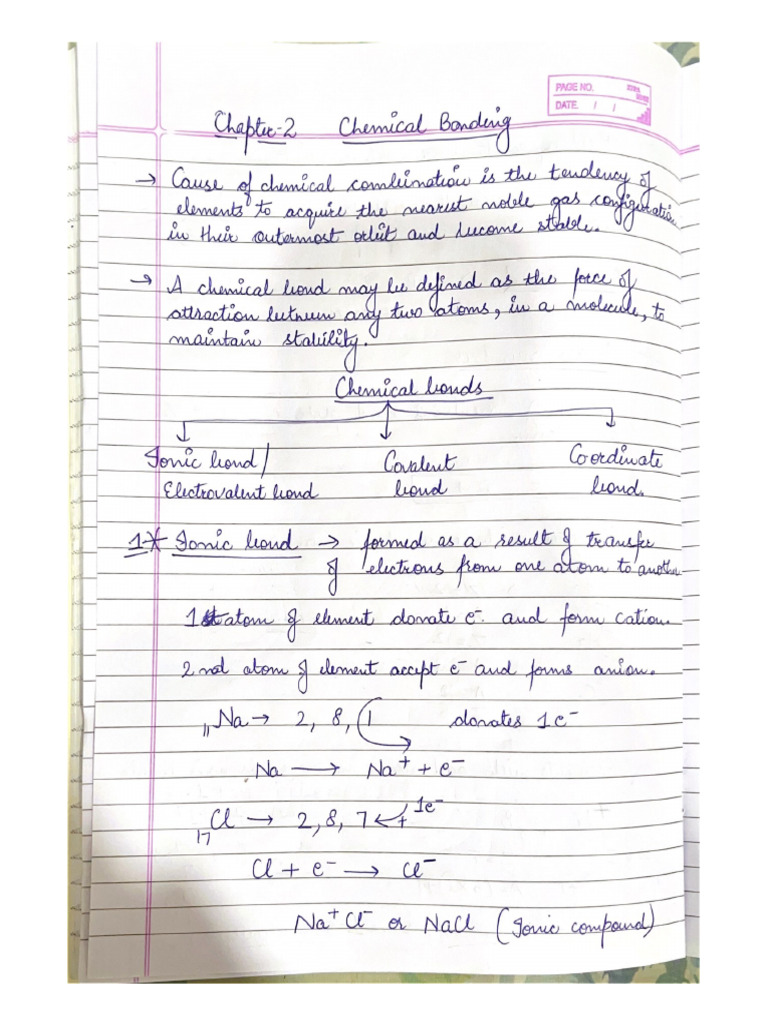 PAGE NO.
DATE. / /
Chapter-2 Chemical Bonding
→ Cause of chemical combination is the tendency of
elements to acquire the nearest noble gas configuration
in their outermost orbit and become stable.
→ A chemical bond may be defined as the force of
attraction between any two atoms, in a molecule, to
maintain stability.
Chemical bonds
Ionic bond/ Covalent Coordinate
Electrovalent bond bond bond.
1* Ionic bond → formed as a result of transfer
of electrons from one atom to another
1st atom of element donate e⁻ and form cation.
2nd atom of element accept e⁻ and forms anion.
₁₁Na → 2, 8, 1 donates 1e⁻
Na → Na⁺ + e⁻
₁₇Cl → 2, 8, 7 ← + 1e⁻
Cl + e⁻ → Cl⁻
Na⁺Cl⁻ or NaCl (Ionic compound)